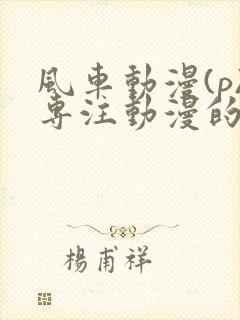 風車動漫(p
專注動漫的
楊甫祥